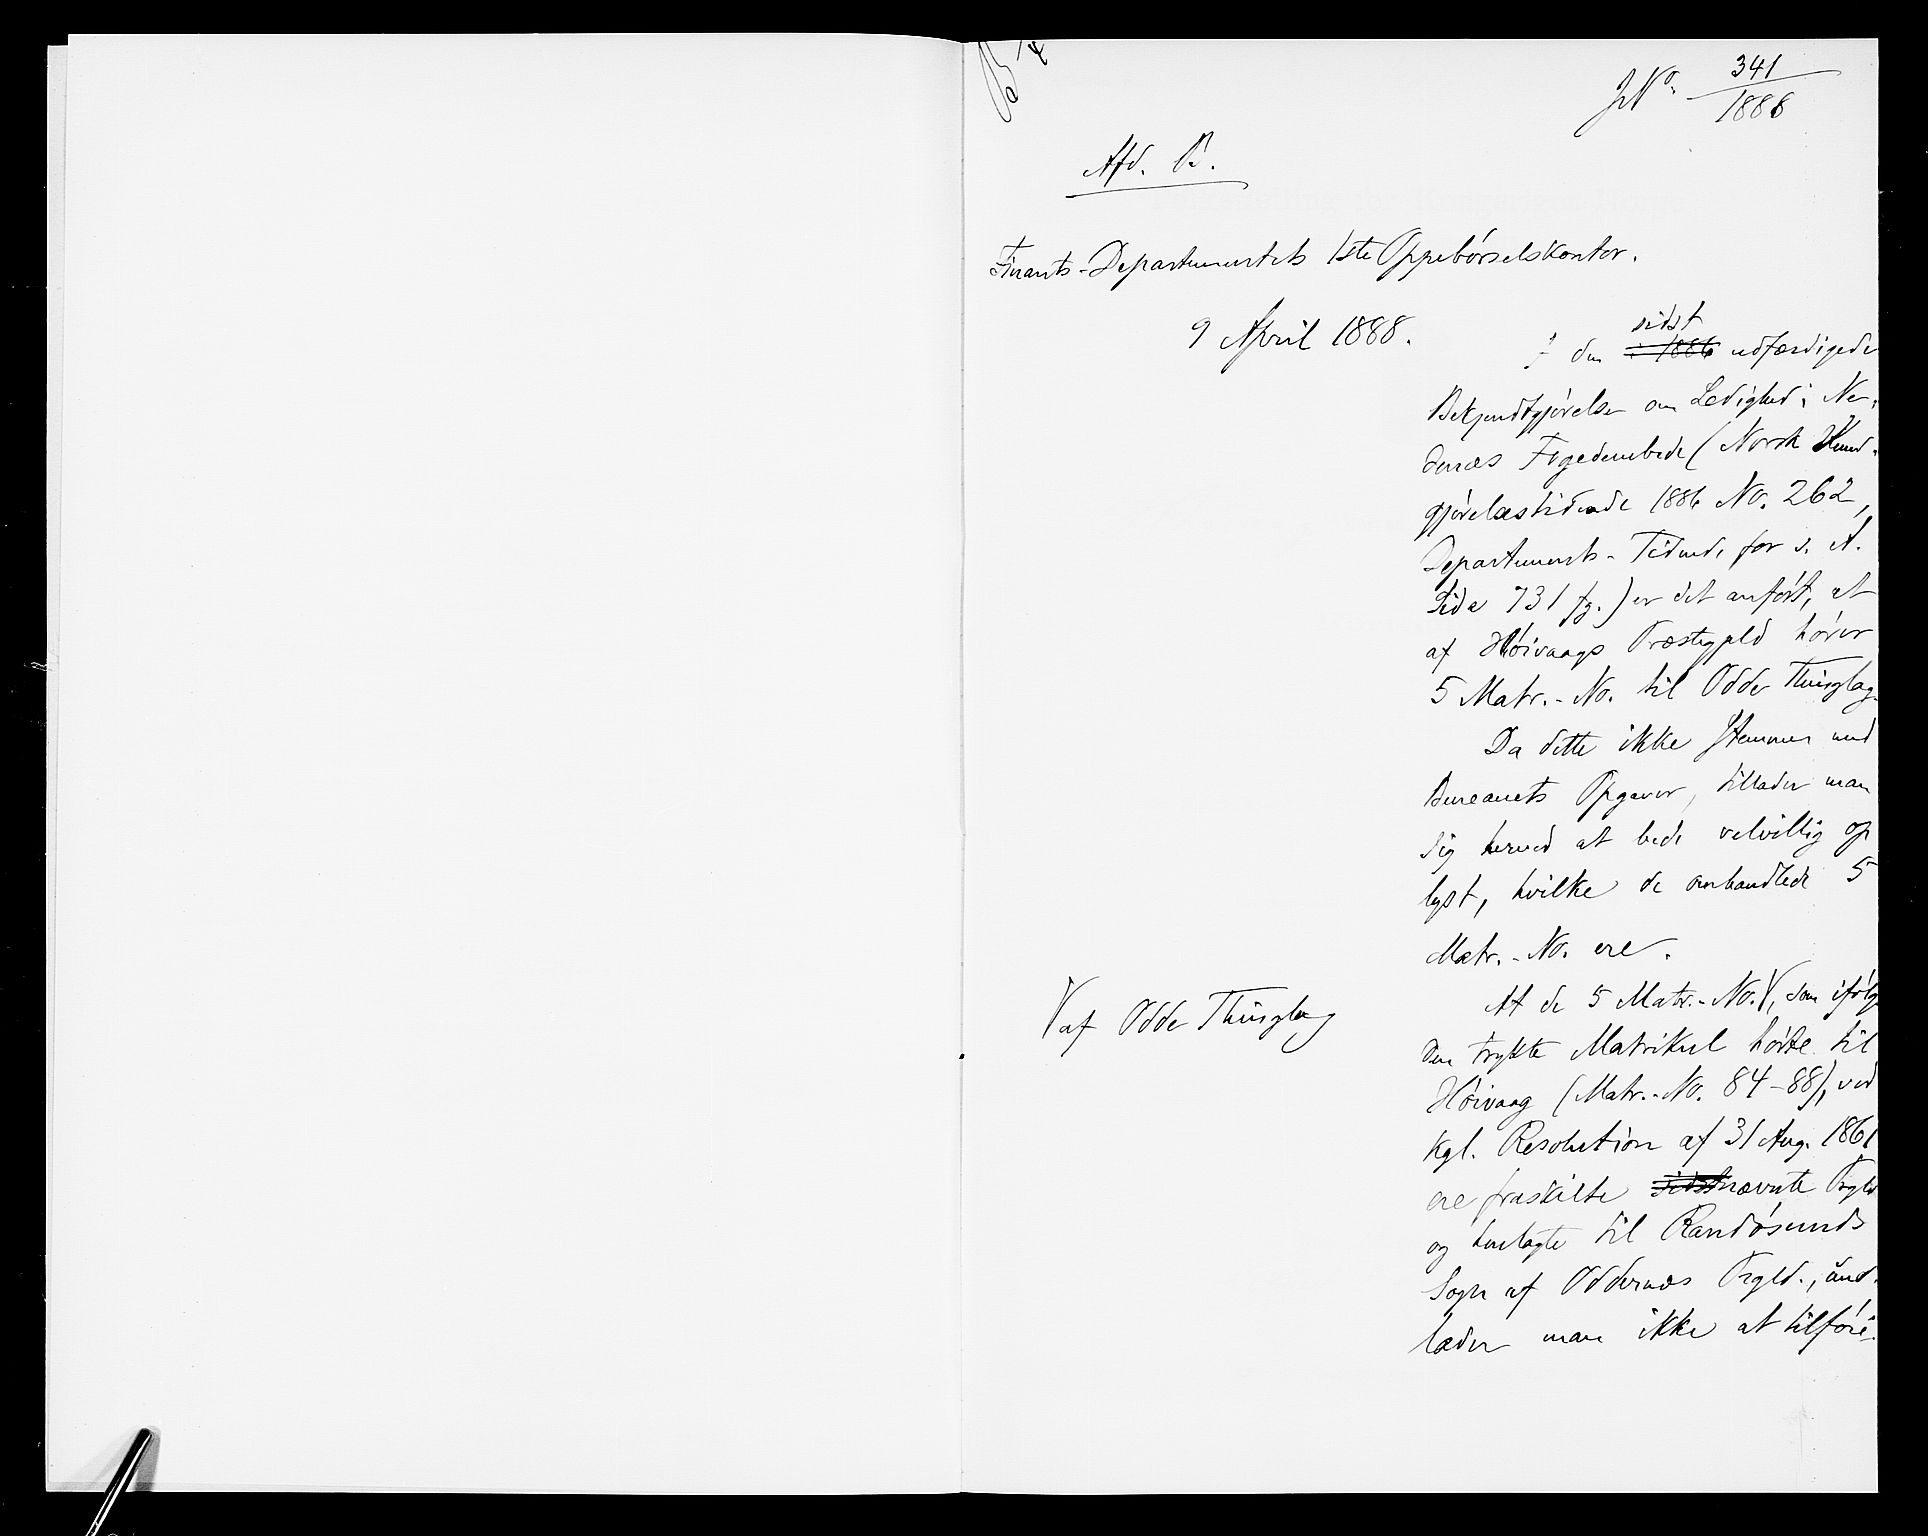 B
JNo. 341/1888
Afd. B.
Finants-Departementets 1ste Oppebørselskontor.
9 April 1888.
sidst
I den i 1886 udfærdigede
Bekjendtgjørelse om Ledighed i Ne-
denæs Fogedembede (Norsk Kund-
gjørelsestidende 1886 No. 262,
Departements-Tidend. for s. A.
Side 731 fg.) er det anført, at
af Høivaags Præstegjeld hører
5 Matr.-No. til Odde Thinglag.
Da dette ikke stemmer med
Bureauets Opgaver, tillader man
sig herved at bede velvillig op
lyst, hvilke de omhandlede 5
Matr.-No. ere.
At de 5 Matr.-No. V, som ifølge
V af Odde Thinglag
den trykte Matrikul hørte til
Høivaag (Matr.-No. 84-88), ved
kgl. Resolution af 31 Aug. 1861
ere fraskilte sidstnævnte Prgld
og henlagte til Randøsunds
Sogn af Oddernæs Prgld., und-
lader man ikke at tilføie.